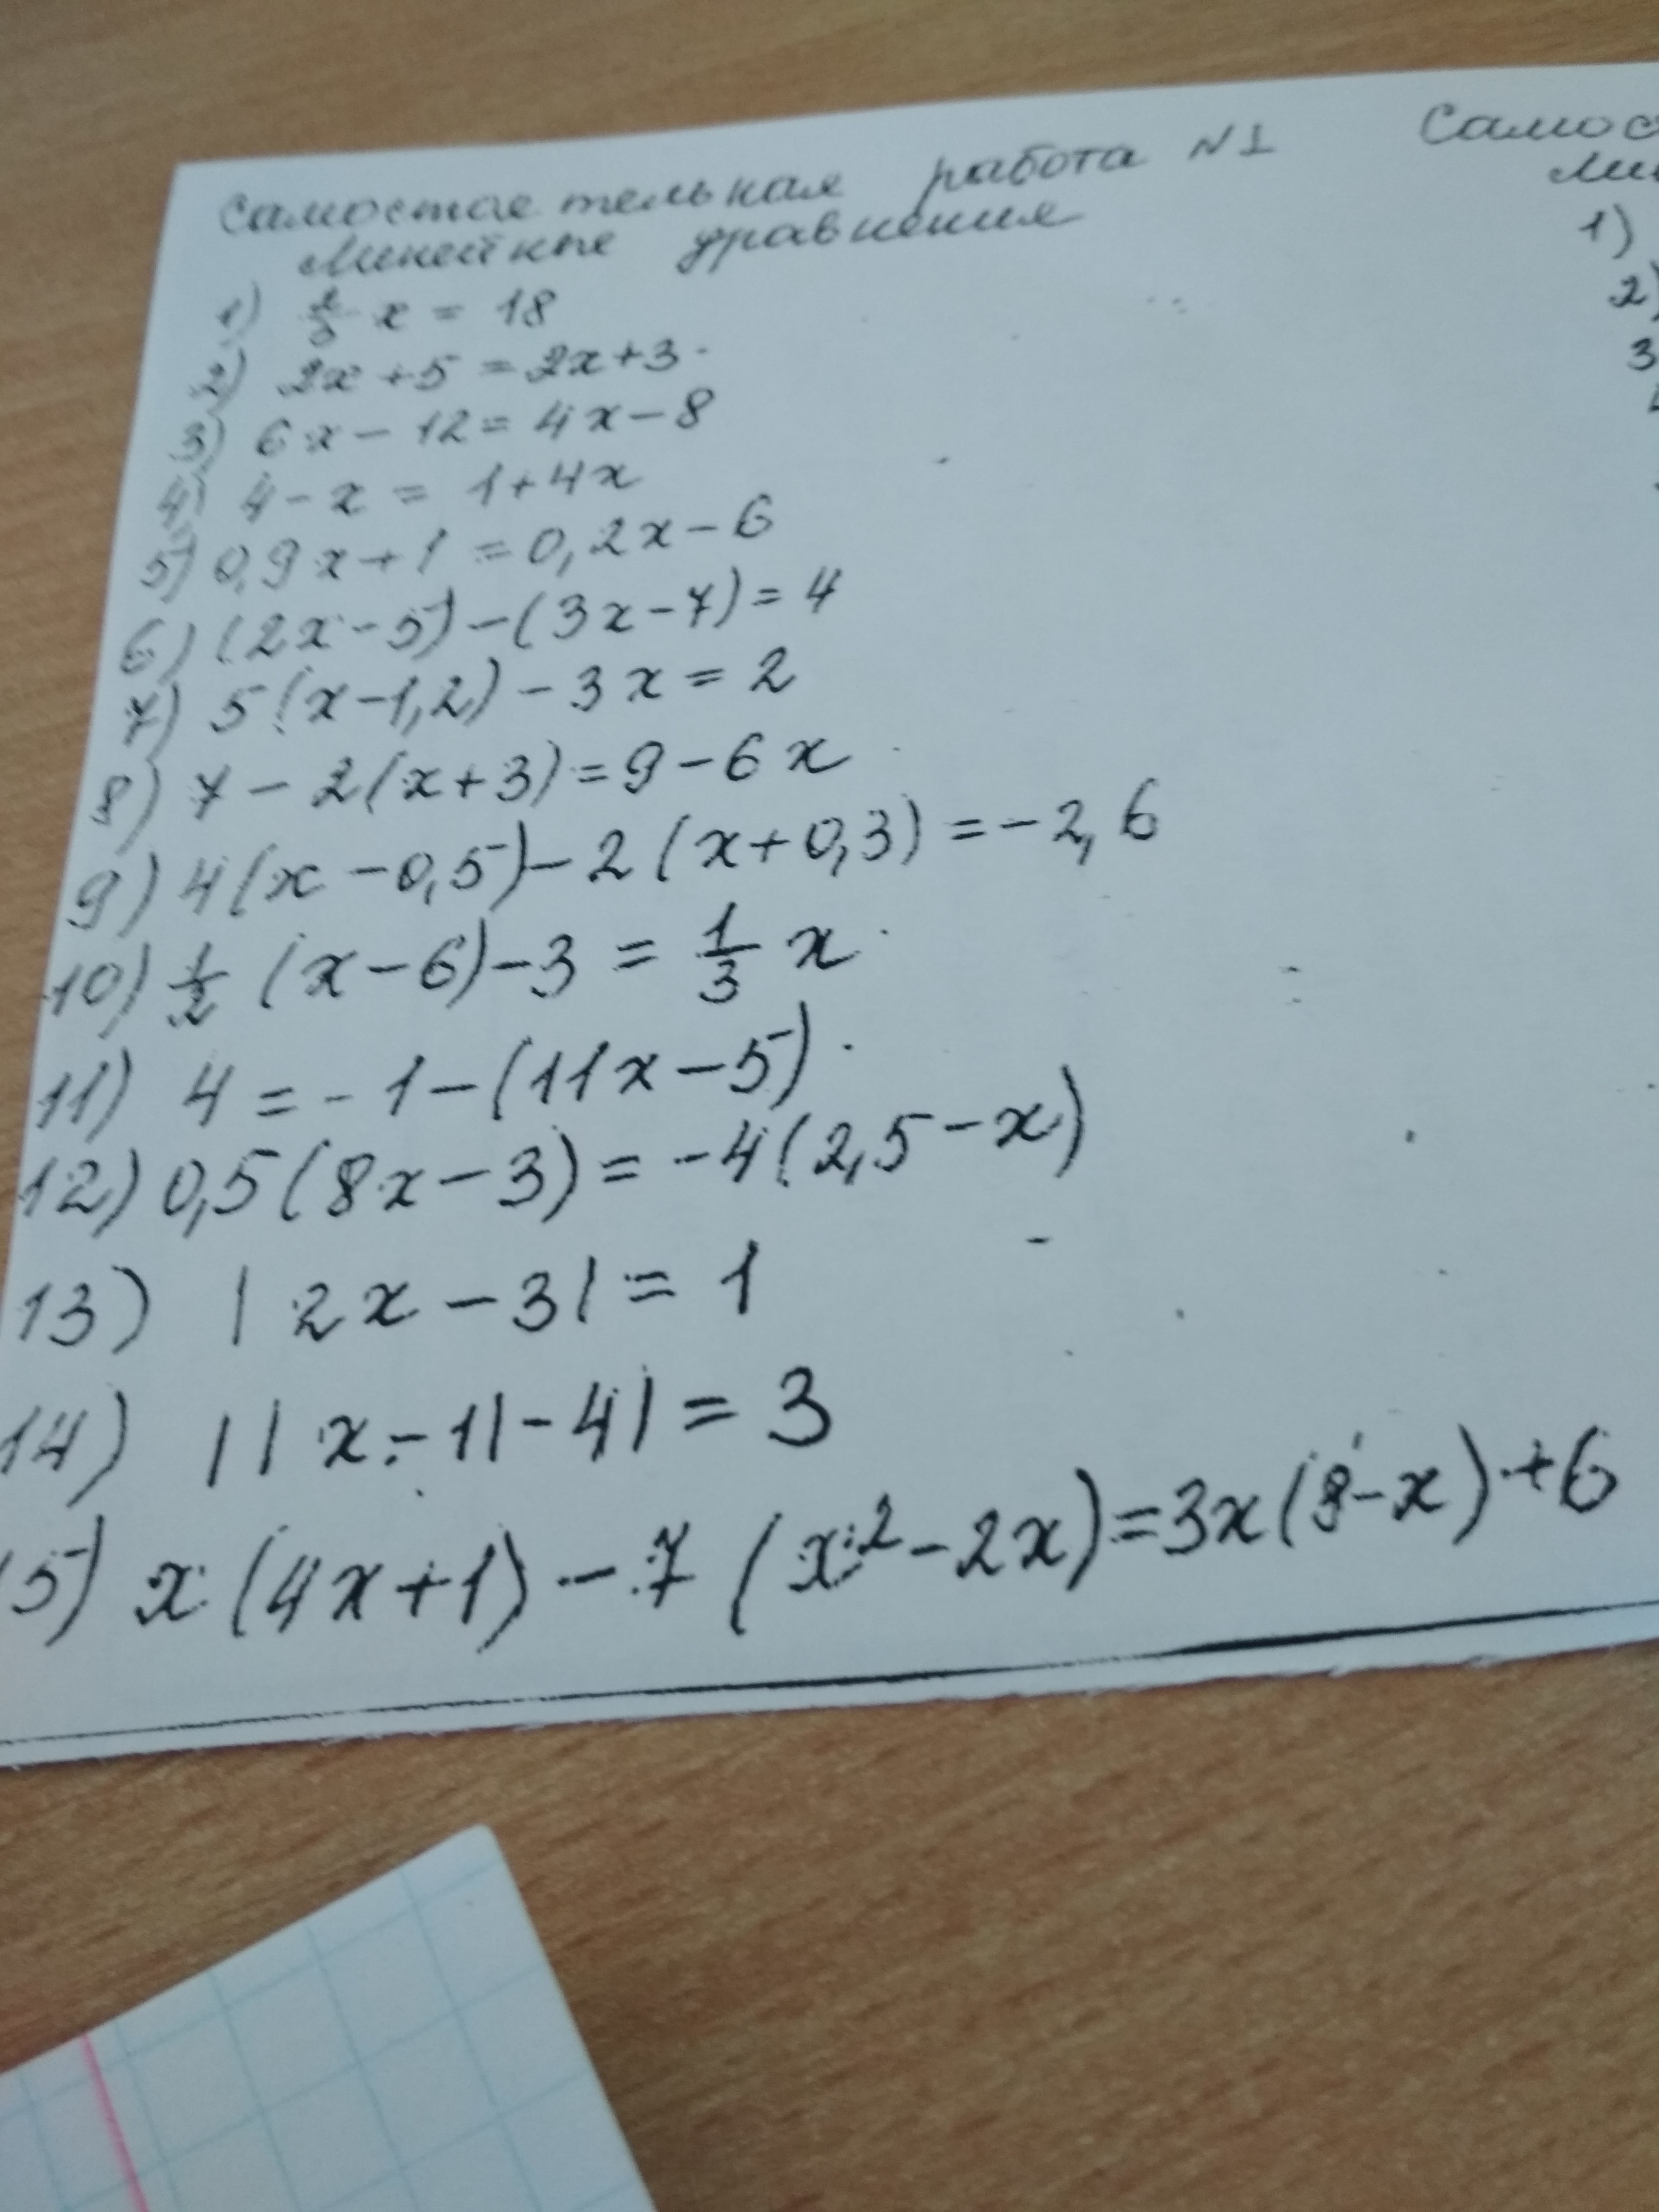 Самостоятельная работа №1
Линейные уравнения
1) x = 18
2) 2x + 5 = 2x + 3
3) 6x - 12 = 4x - 8
4) 4 - x = 1 + 4x
5) 0,9x + 1 = 0,2x - 6
6) (2x - 5) - (3x - 7) = 4
7) 5(x - 1,2) - 3x = 2
8) 7 - 2(x + 3) = 9 - 6x
9) 4(x - 0,5) - 2(x + 0,3) = -2,6
10) 1/2 (x - 6) - 3 = 1/3 x
11) 4 = -1 - (11x - 5)
12) 0,5(8x - 3) = -4(2,5 - x)
13) |2x - 3| = 1
14) ||x - 1| - 4| = 3
15) x(4x + 1) - 7(x² - 2x) = 3x(8 - x) + 6
Самос
Ли
1)
2)
3